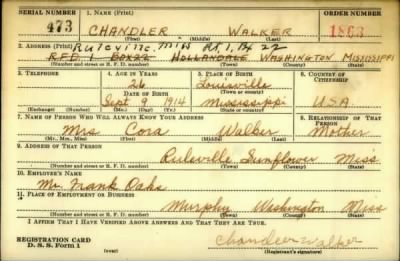 SERIAL NUMBER 1. NAME (Print) ORDER NUMBER
473 CHANDLER WALKER 1863
(First) (Middle) (Last)
2. ADDRESS (Print) Ruleville, Miss Rt. 1, Bx 22
RFD 1 BOX22 HOLLANDALE WASHINGTON MISSISSIPPI
(Number and street or R. F. D. number) (Town) (County) (State)
3. TELEPHONE 4. AGE IN YEARS 5. PLACE OF BIRTH 6. COUNTRY OF CITIZENSHIP
26 Louisville
DATE OF BIRTH (Town or county)
Sept 9 1914 Mississippi U.S.A.
(Exchange) (Number) (Mo.) (Day) (Yr.) (State or country)
7. NAME OF PERSON WHO WILL ALWAYS KNOW YOUR ADDRESS 8. RELATIONSHIP OF THAT PERSON
Mrs Cora Walker Mother
(Mr., Mrs., Miss) (First) (Middle) (Last)
9. ADDRESS OF THAT PERSON
Ruleville Sunflower Miss
(Number and street or R. F. D. number) (Town) (County) (State)
10. EMPLOYER'S NAME
Mr. Frank Oaks
11. PLACE OF EMPLOYMENT OR BUSINESS
Murphy Washington Miss
(Number and street or R. F. D. number) (Town) (County) (State)
I AFFIRM THAT I HAVE VERIFIED ABOVE ANSWERS AND THAT THEY ARE TRUE.
REGISTRATION CARD
D. S. S. Form 1 (over) Chandler Walker
(Registrant's signature)